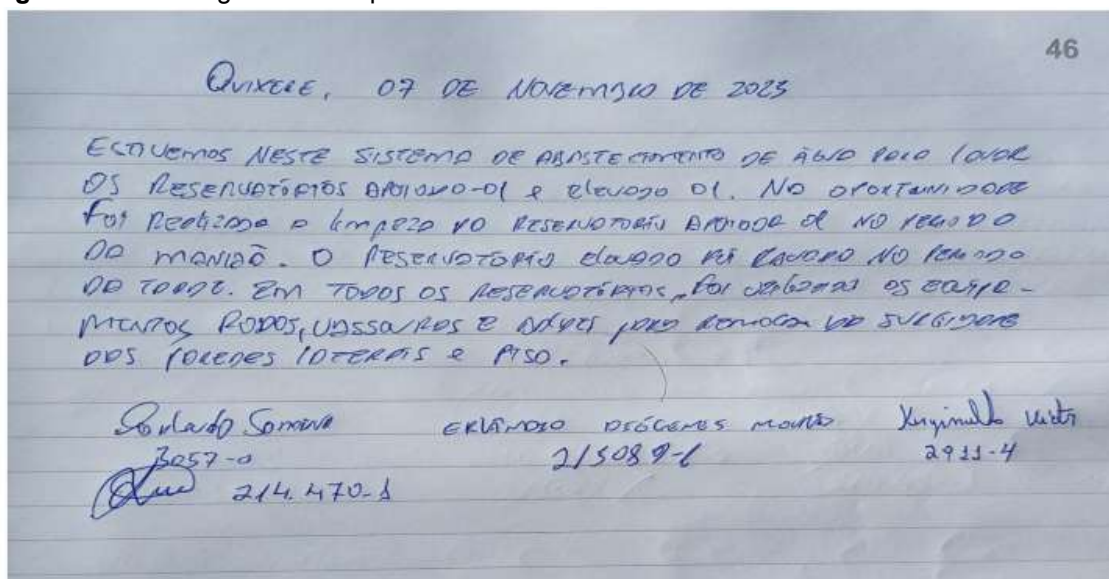 46
QUIXERE, 07 DE NOVEMBRO DE 2023
ESTIVEMOS NESTE SISTEMA DE ABASTECIMENTO DE ÁGUA PARA LAVAR
OS RESERVATÓRIOS APOIADO-01 e elevado 01. NA OPORTUNIDADE
foi Realizada a limpeza DO RESERVATORIO APOIADO 01 NO PERIODO
DA MANHÃ. O RESERVATORIO elevado foi LAVADO NO PERIODO
DA TARDE. EM TODOS OS RESERVATÓRIOS, foi utilizado os EQUIPA-
MENTOS RODOS, VASSOURAS E para REMOÇÃO DA SUJIDADE
DAS PAREDES LATERAIS e PISO.
ERLÂNDIO DIÓGENES
3057-0 215089-1 2911-4
214.470-1